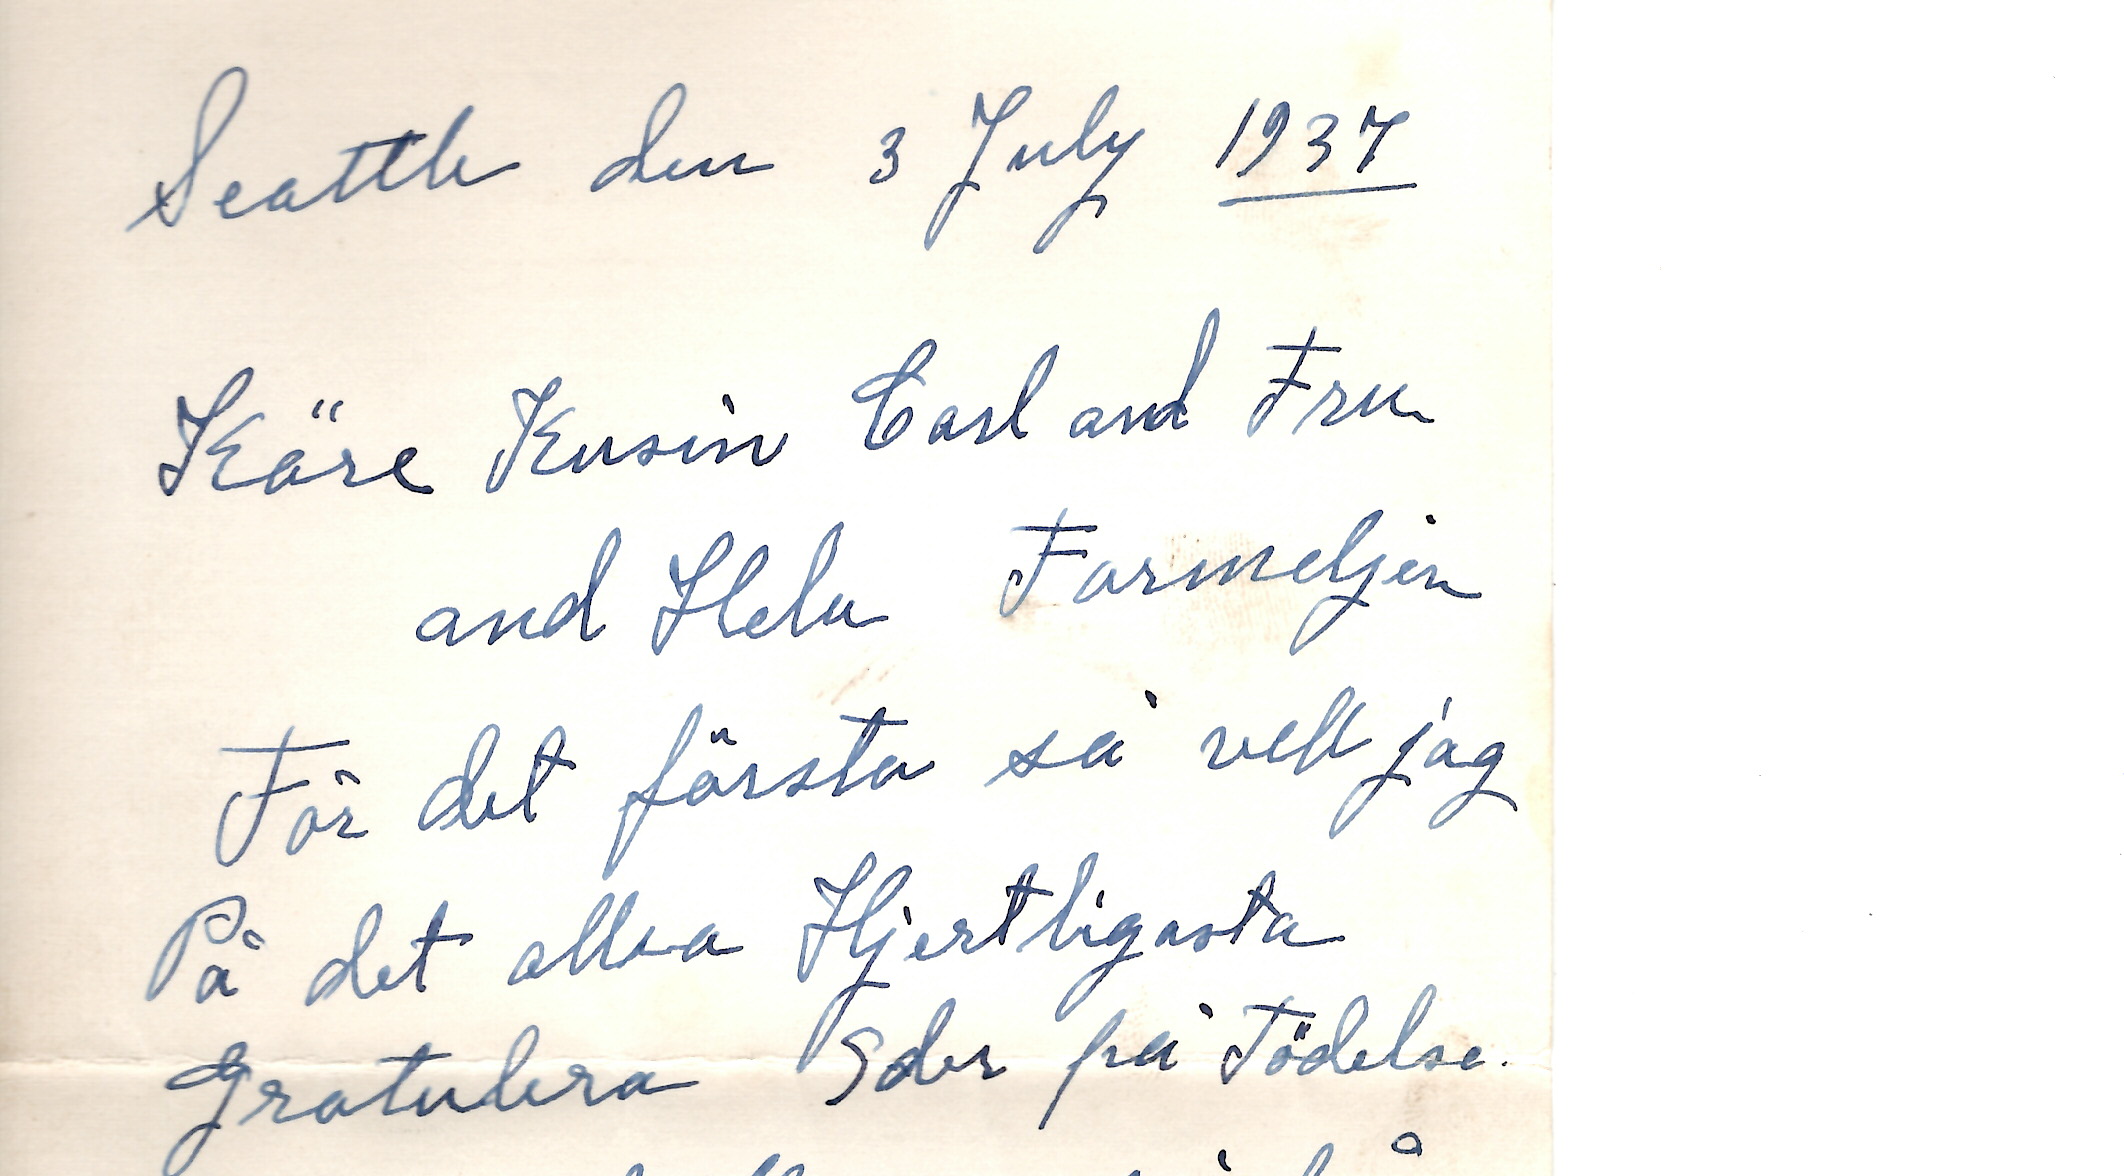 Seattle den 3 July 1937
Käre Kusin Carl and Fru
and Hela Farmeljen
För det första så vell jag
På det allra Hjertligasta
Gratulera Eder på Födelse.